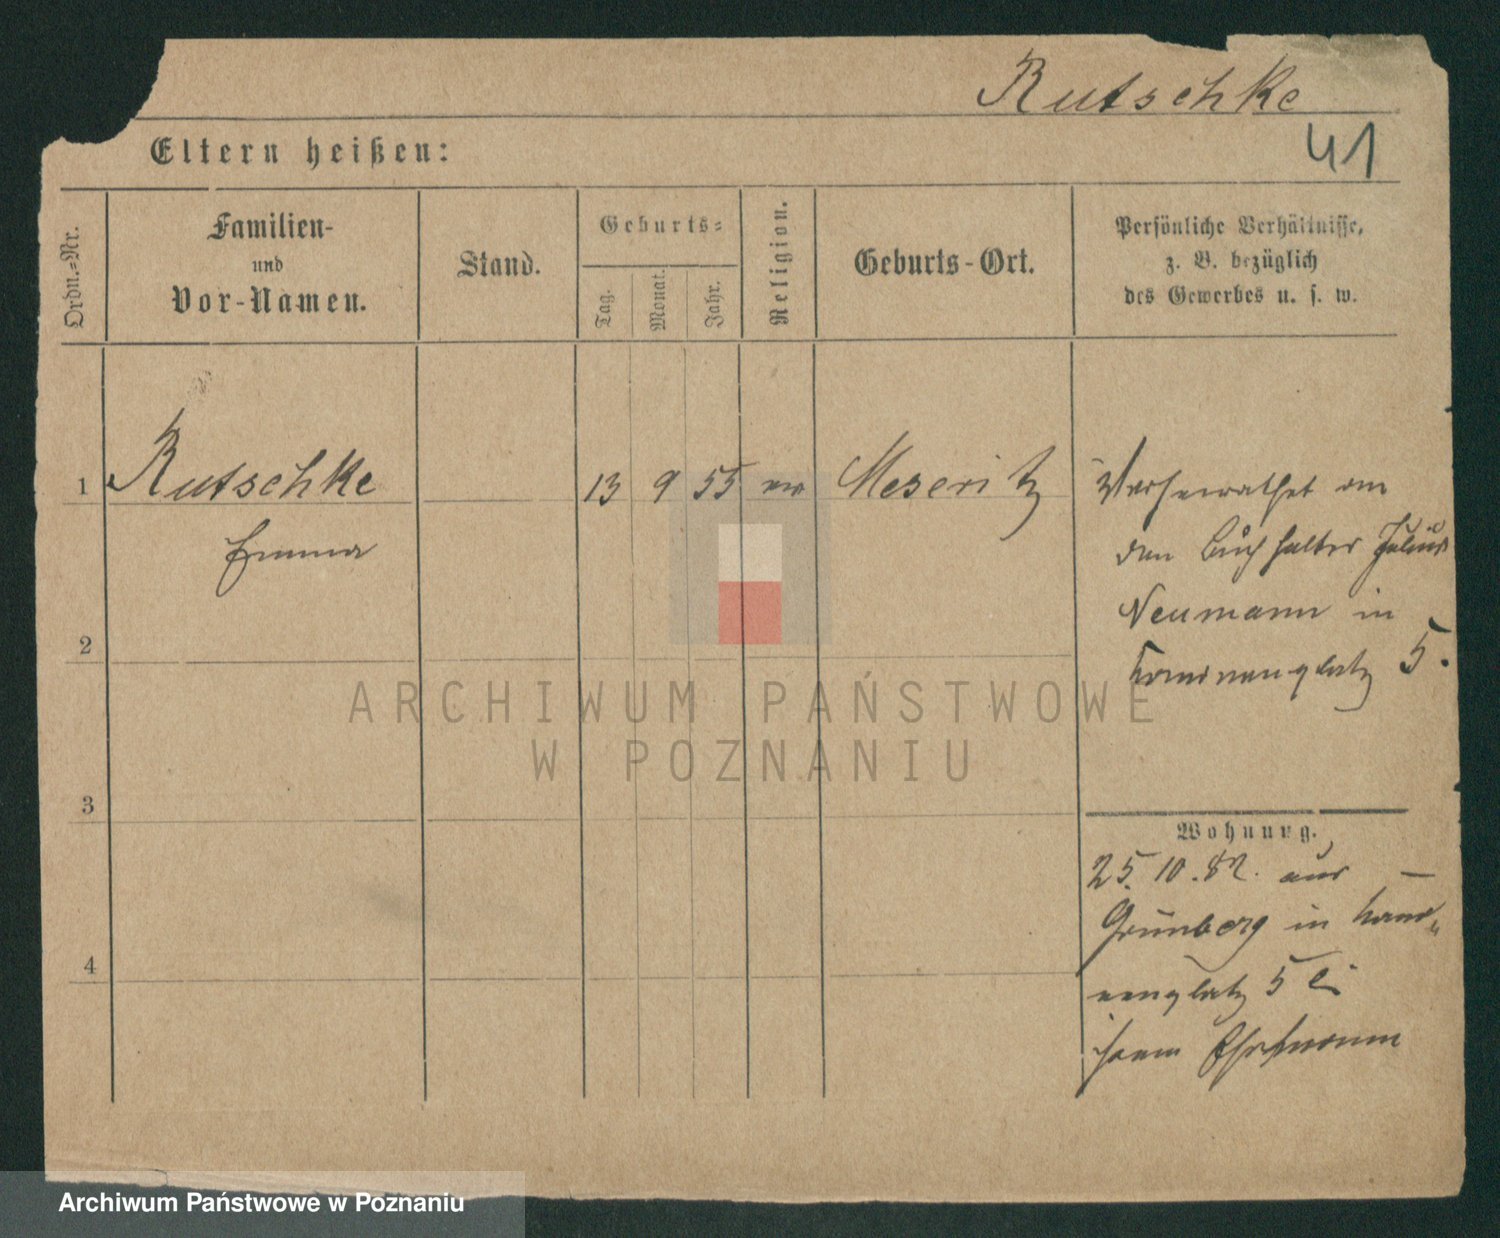 Rutschke
41
Eltern heißen:
Ordn.-Nr.
Familien-
und
Vor-Namen.
Stand.
Geburts-
Tag.
Monat.
Jahr.
Religion.
Geburts-Ort.
Persönliche Verhältnisse,
z. B. bezüglich
des Gewerbes u. s. w.
1 Rutschke 13 9 55 ev Meseritz Verheirathet an
Emma den Buchhalter Julius
Neumann in
Kanonenplatz 5.
2
3
4
Wohnung.
25.10.82. aus
Grünberg in Kano-
nenplatz 5 bei
ihrem Ehemann
ARCHIWUM PAŃSTWOWE
W POZNANIU
Archiwum Państwowe w Poznaniu